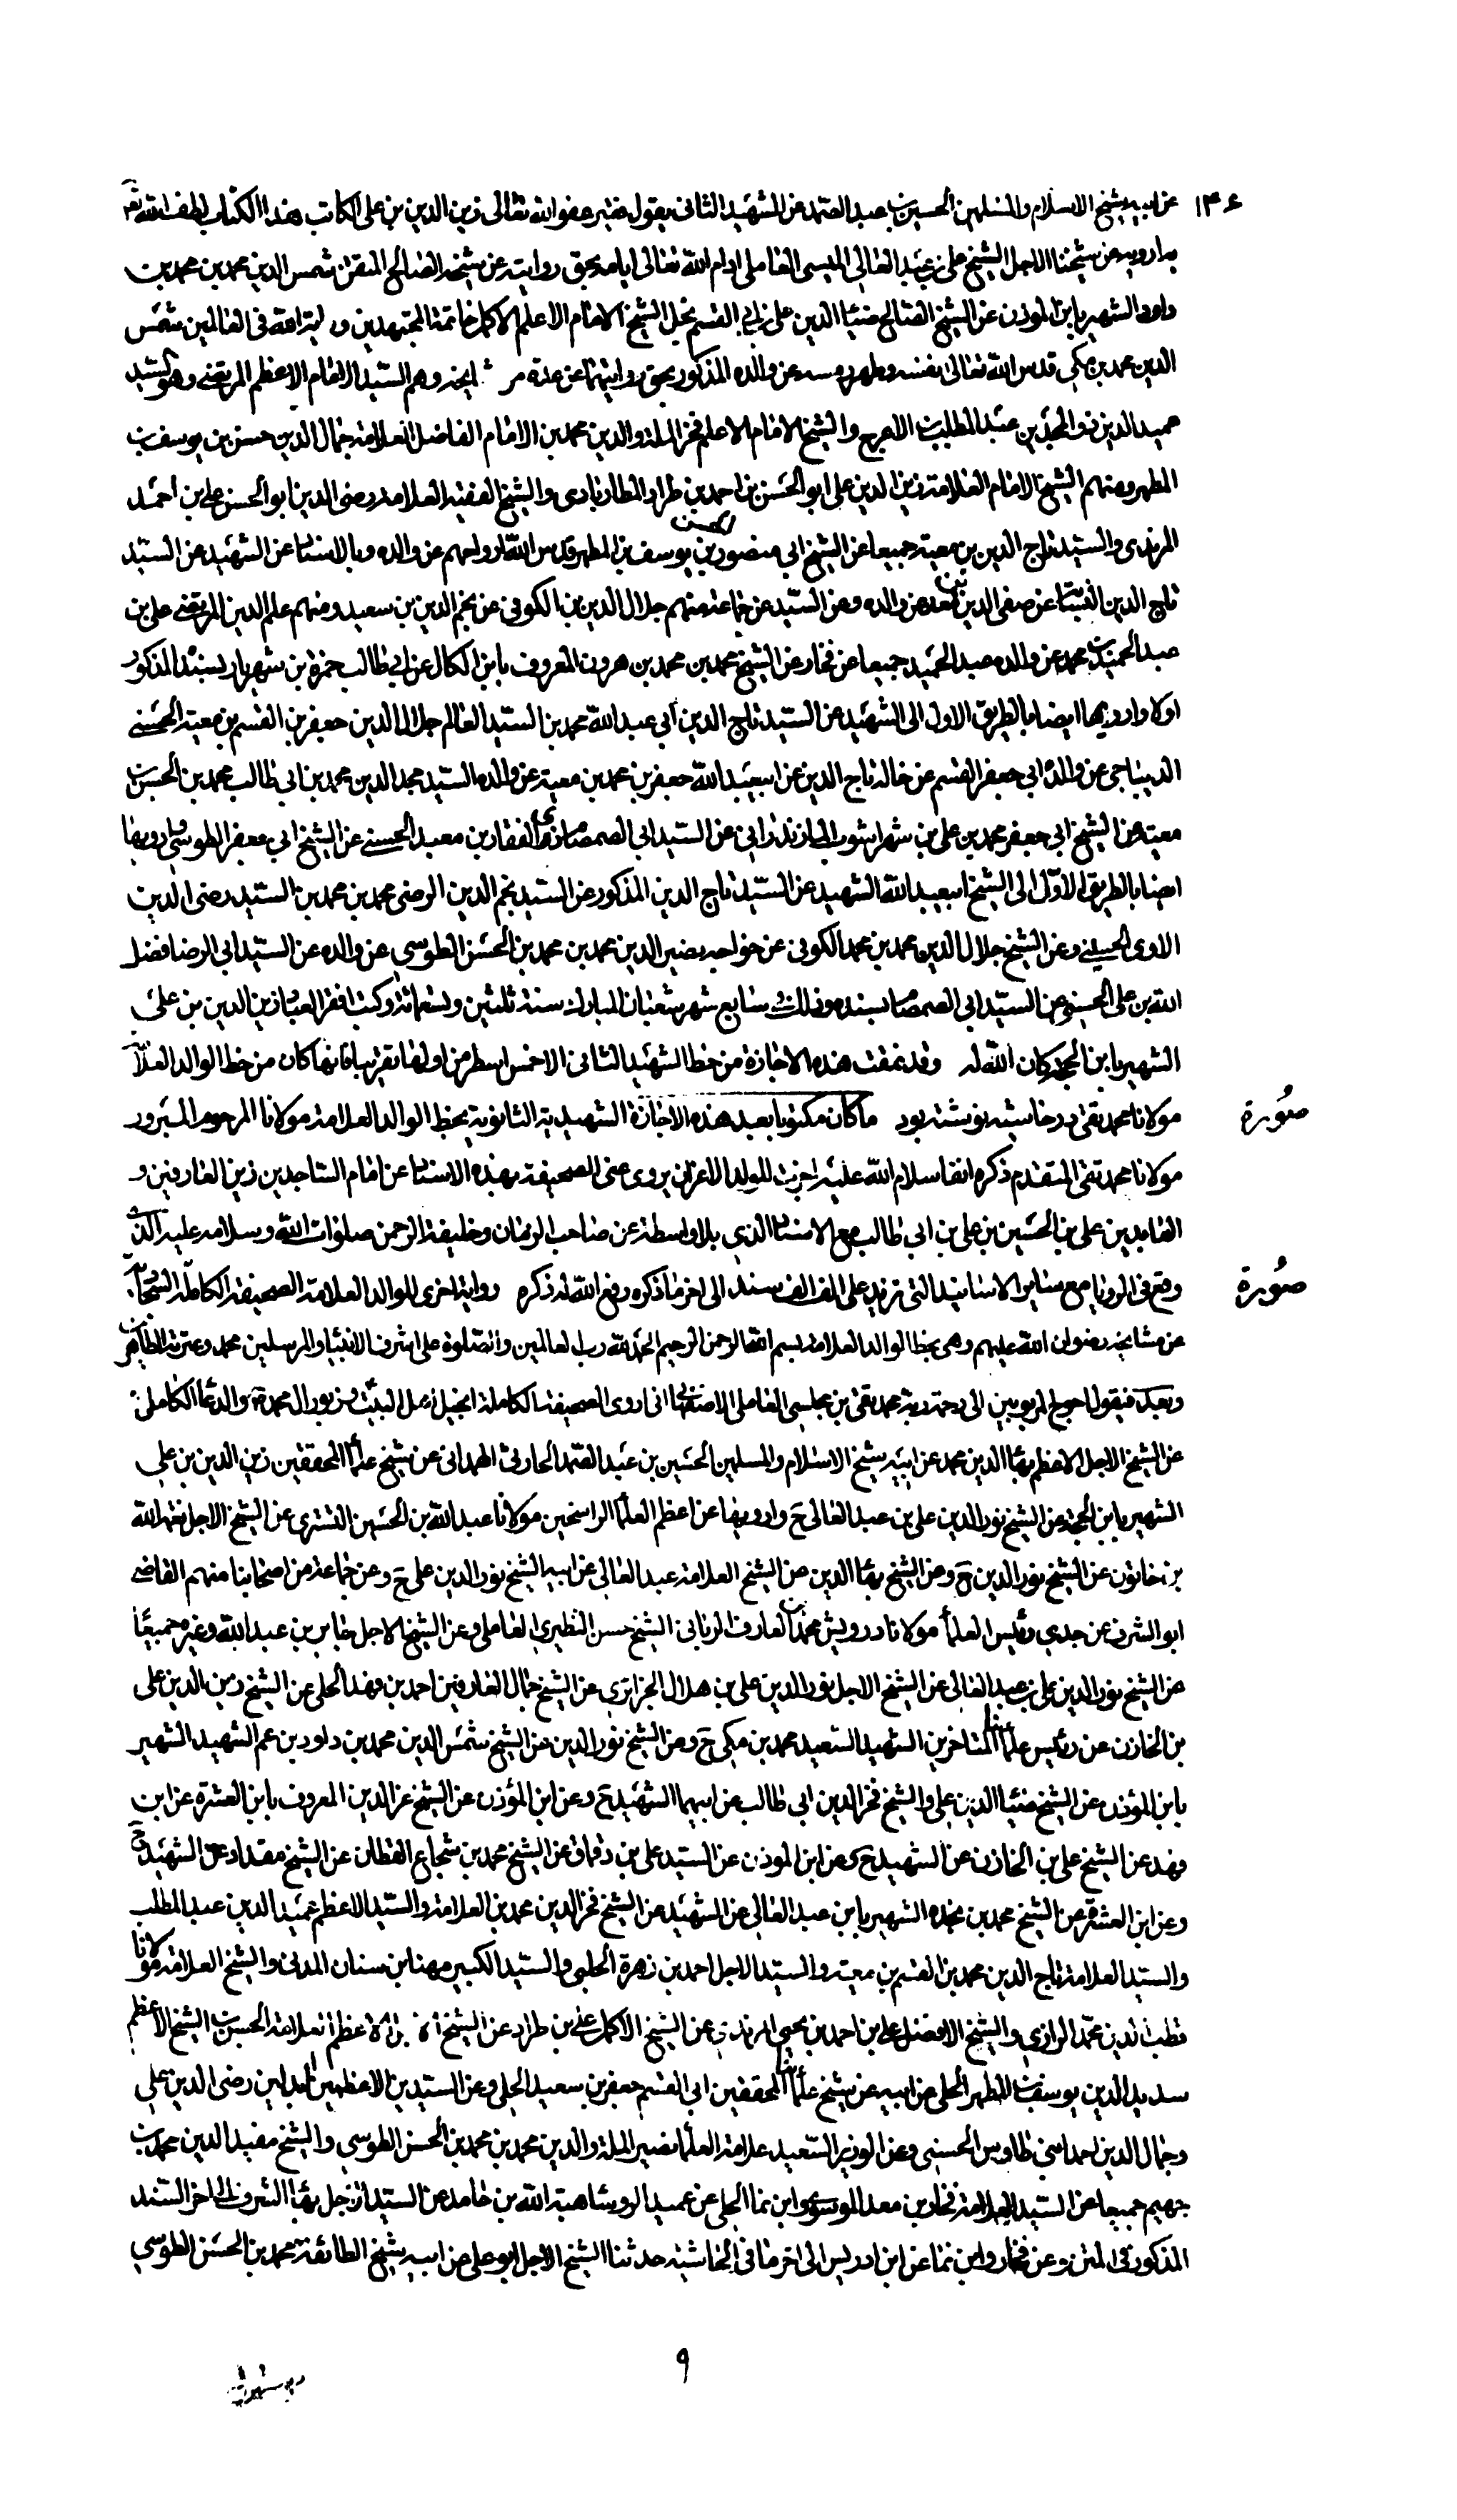 ١٣٤
عن ابيه شيخ الاسلام والمسلمين الحسين بن عبد الصمد عن الشهيد الثانى يقول فقير عفو الله تعالى زين الدين بن على الكاتب هذا الكتاب لطف الله تعالى
به ارويه عن شيخنا الاجل الشيخ على بن عبد العالى الميسى العاملى ادام الله تعالى ايامه بحق روايته عن شيخه الصالح المتقن شمس الدين محمد بن محمد بن
داود الشهير بابن المؤذن عن الشيخ الصالح ضياء الدين على بن ابى القسم نجل الشيخ الامام الاعلم الاكمل خاتمة المجتهدين و فى العالمين شمس
الدين محمد بن مكى قدس الله تعالى نفسه وطهر رمسه عن والده المذكور بحق روايتهما عن عدة وهم السيد الامام الاعظم المرتضى وهو السيد
عميد الدين ذو المجدين عبد المطلب بن الاعرج والشيخ الامام الاعلم فخر الملة والدين محمد بن الامام الفاضل العلامة جمال الدين حسن بن يوسف بن
المطهر ومنهم الشيخ الامام العلامة زين الدين على ابو الحسن بن احمد بن طراد المطارنادى والشيخ الفقيه العلامة رضى الدين ابو الحسن على بن احمد
المزيدى والسيد تاج الدين بن معية جميعا عن الشيخ ابى منصور الحسن بن يوسف بن المطهر قدس الله ارواحهم عن والده وبالاسناد عن الشهيد عن السيد
تاج الدين النسابة عن صفى الدين بن معد عن والده وعن السيد عن جماعة منهم جلال الدين بن الكوفى عن نجم الدين بن سعيد ومنهم علم الدين المرتضى على بن
عبد الحميد بن محمد عن والده عبد الحميد جميعا عن فخار عن الشيخ محمد بن محمد بن هرون المعروف بابن الكمال عن ابى طالب حمزة بن شهريار بسنده المذكور
اولا وارويها ايضا بالطريق الاول الى الشهيد عن السيد تاج الدين ابى عبد الله محمد بن السيد العالم جلال الدين جعفر بن القسم بن معية الحسنى
الديباجى عن والده ابى جعفر القسم عن خاله تاج الدين عن ابى عبد الله جعفر بن محمد بن معية عن والده السيد مجد الدين محمد بن ابى طالب محمد بن الحسن بن
معية عن الشيخ ابى جعفر محمد بن على بن شهراشوب المازندرانى عن السيد ابى الصمصام ذى الفقار بن معبد الحسنى عن الشيخ ابى جعفر الطوسى وارويها
ايضا بالطريق الاول الى الشيخ ابى عبد الله الشهيد عن السيد تاج الدين المذكور عن السيد نجم الدين الرضى محمد بن محمد بن السيد رضى الدين
الاوى الحسينى وعن الشيخ جلال الدين محمد بن محمد الكوفى عن خواجه نصير الدين محمد بن محمد بن الحسن الطوسى عن والده عن السيد ابى الرضا فضل
الله بن على الحسينى عن السيد ابى الصمصام بسنده وذلك فى سابع شهر شعبان المبارك سنة ثلثين وتسعمائة وكتب افقر العباد زين الدين بن على
الشهير بابن الحجة كان الله له وقد نمقت هذه الاجازة من خط الشهيد الثانى الا خمس اسطر من اولها تقريبا فانها كان من خط الوالد العلامة
صورة
مولانا محمد تقى در حاشيه نوشته بود ما كان مكتوبا بعد هذه الاجازة الشهيدية الثانوية بخط الوالد العلامة مولانا المرحوم المبرور
مولانا محمد تقى المتقدم ذكره انفا سلام الله عليه اجزت للولد الاعز ان يروى عنى الصحيفة بهذه الاسناد عن امام الساجدين زين العارفين و
العابدين على بن الحسين بن على بن ابى طالب مع الاسناد الذى بلا واسطة عن صاحب الزمان وخليفة الرحمن صلوات الله وسلامه عليه الذى
صورة
وقع فى الرويا مع ساير الاسانيد التى تزيد على الف الف سند الى اخر ما ذكره رفع الله له ذكره رواية اخرى للوالد العلامة الصحيفة الكاملة السجادية
عن مشايخه رضوان الله عليهم وهى بخط الوالد العلامة بسم الله الرحمن الرحيم الحمد لله رب العالمين والصلوة على اشرف الانبياء والمرسلين محمد وعترته الطاهرين
وبعد فيقول احوج المربوبين الى رحمة ربه محمد تقى بن مجلسى العاملى الاصفهانى انى اروى الصحيفة الكاملة انجيل اهل البيت وزبور ال محمد والدعاء الكامل
عن الشيخ الاجل الاعظم بهاء الدين محمد عن ابيه شيخ الاسلام والمسلمين الحسين بن عبد الصمد الحارثى الهمدانى عن شيخ علماء المحققين زين الدين بن على
الشهير بابن الحجة عن الشيخ نور الدين على بن عبد العالى ح وارويها عن اعظم العلماء الراسخين مولانا عبد الله بن الحسين التسترى عن الشيخ الاجل نعمة الله
بن خاتون عن الشيخ نور الدين ح وعن الشيخ بهاء الدين عن الشيخ العلامة عبد العالى عن ابيه الشيخ نور الدين على ح وعن جماعة من اصحابنا منهم القاضى
ابو الشرف عن جدى رئيس العلماء مولانا درويش محمد بن العارف الربانى الشيخ حسن النطنزى العاملى وعن الشيخ الاجل جابر بن عبد الله وغيره جميعا
عن الشيخ نور الدين على بن عبد العالى عن الشيخ الاجل نور الدين على بن هلال الجزائرى عن الشيخ جمال العارفين احمد بن فهد الحلى عن الشيخ زين الدين على
بن الخازن عن رئيس علمائنا المتاخرين الشهيد السعيد محمد بن مكى ح وعن الشيخ نور الدين عن الشيخ شمس الدين محمد بن داود بن عم الشهيد الشهير
بابن المؤذن عن الشيخ ضياء الدين على والشيخ فخر الدين ابى طالب عن ابيهما الشهيد ح وعن ابن المؤذن عن الشيخ عز الدين المعروف بابن العشرة عن ابن
فهد عن الشيخ على بن الخازن عن الشهيد ح وعن ابن المؤذن عن السيد على بن دقماق عن الشيخ محمد بن شجاع القطان عن الشيخ مقداد عن الشهيد ح
وعن ابن العشرة عن الشيخ محمد بن نجده الشهير بابن عبد العالى عن الشهيد عن الشيخ فخر الدين محمد بن العلامة والسيد الاعظم عميد الدين عبد المطلب
والسيد العلامة تاج الدين محمد بن القسم بن معية والسيد الاجل احمد بن زهرة الحلبى والسيد الكبير مهنا بن سنان المدنى والشيخ العلامة مولانا
قطب الدين محمد الرازى والشيخ الافضل على بن احمد بن يحيى المزيدى عن الشيخ الاكمل على بن طراد عن الشيخ العلامة الحسن بن الشيخ الاعظم
سديد الدين يوسف بن المطهر الحلى عن ابيه عن شيخ علمائنا المحققين ابى القسم جعفر بن سعيد الحلى وعن السيدين الاعظمين البدلين رضى الدين على
وجمال الدين احمد ابنى طاوس الحسنى وعن الوزير السعيد علامة العلماء نصير الملة والدين محمد بن محمد بن الحسن الطوسى والشيخ مفيد الدين محمد بن
جهيم جميعا عن السيد العلامة فخار بن معد الموسوى وابن نما الحلى عن عميد الروساء هبة الله بن حامد عن السيد الاجل بهاء الشرف الى اخر السند
المذكور فى المتن وعن فخار وابن نما عن ابن ادريس الى اخر ما فى الحاشية حدثنا الشيخ الاجل ابو على عن ابيه شيخ الطائفة محمد بن الحسن الطوسى
٩